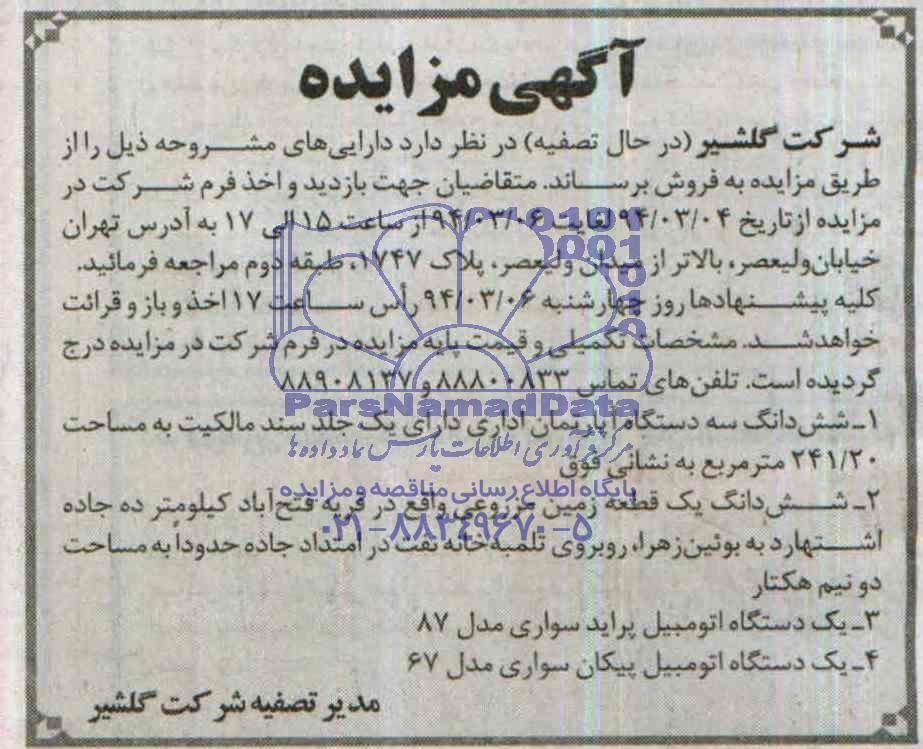 آگهی مزایده
شرکت گلشیر (در حال تصفیه) در نظر دارد دارایی‌های مشروحه ذیل را از
طریق مزایده به فروش برساند. متقاضیان جهت بازدید و اخذ فرم شرکت در
مزایده از تاریخ ۹۴/۰۳/۰۴ لغایت ۹۴/۰۳/۰۶ از ساعت ۱۵ الی ۱۷ به آدرس تهران
خیابان ولیعصر، بالاتر از میدان ولیعصر، پلاک ۱۷۴۷، طبقه دوم مراجعه فرمائید.
کلیه پیشنهادها روز چهارشنبه ۹۴/۰۳/۰۶ رأس ساعت ۱۷ اخذ و باز و قرائت
خواهد شد. مشخصات تکمیلی و قیمت پایه مزایده در فرم شرکت در مزایده درج
گردیده است. تلفن‌های تماس ۸۸۸۰۰۸۳۳ و ۸۸۹۰۸۱۳۷
ParsNamadData
۱ـ شش‌دانگ سه دستگاه آپارتمان اداری دارای یک جلد سند مالکیت به مساحت
مرکز فرآوری اطلاعات پارس نماد داده ها
۲۴۱/۲۰ مترمربع به نشانی فوق
پایگاه اطلاع رسانی مناقصه و مزایده
۲ـ شش‌دانگ یک قطعه زمین مزروعی واقع در قریه فتح‌آباد کیلومتر ده جاده
۰۲۱-۸۸۳۴۹۶۷۰-۵
اشتهارد به بوئین‌زهرا، روبروی تلمبه‌خانه نفت در امتداد جاده حدوداً به مساحت
دو نیم هکتار
۳ـ یک دستگاه اتومبیل پراید سواری مدل ۸۷
۴ـ یک دستگاه اتومبیل پیکان سواری مدل ۶۷
مدیر تصفیه شرکت گلشیر